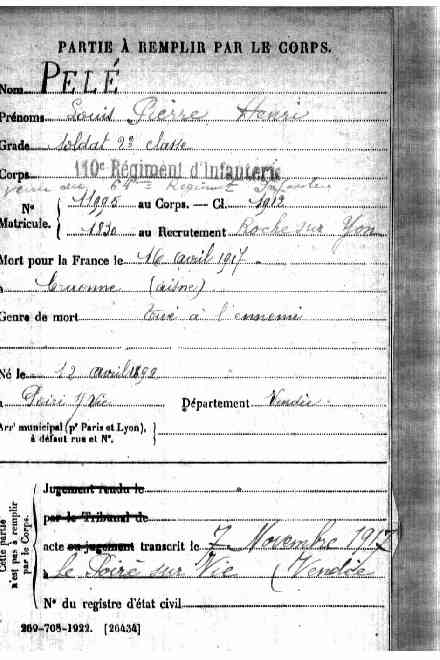 PARTIE À REMPLIR PAR LE CORPS.
Nom PELÉ
Prénoms Louis Pierre Henri
Grade Soldat 2e classe
Corps 110e Régiment d'Infanterie
venu du 64me Régiment Infanterie
N° Matricule. { 11995 au Corps. — Cl. 1912
1830 au Recrutement Roche sur Yon
Mort pour la France le 16 avril 1917
à Craonne (aisne)
Genre de mort Tué à l'ennemi
Né le 12 avril 1892
à Poiré s/ Vie Département Vendée
Arrt municipal (pr Paris et Lyon), à défaut rue et N°. }
Cette partie n'est pas à remplir par le Corps.
Jugement rendu le
par le Tribunal de
acte ou jugement transcrit le 7 Novembre 1917
à le Poiré sur Vie (Vendée
N° du registre d'état civil
269-708-1922. [26434]